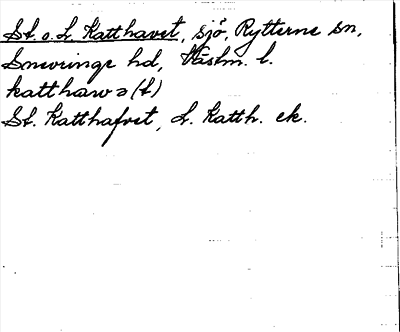 St. o. L. Katthavet, sjö, Rytterne sn,
Snevringe hd, Västm. l.
katthawə (t)
St. Katthafvet, L. Katth. ek.